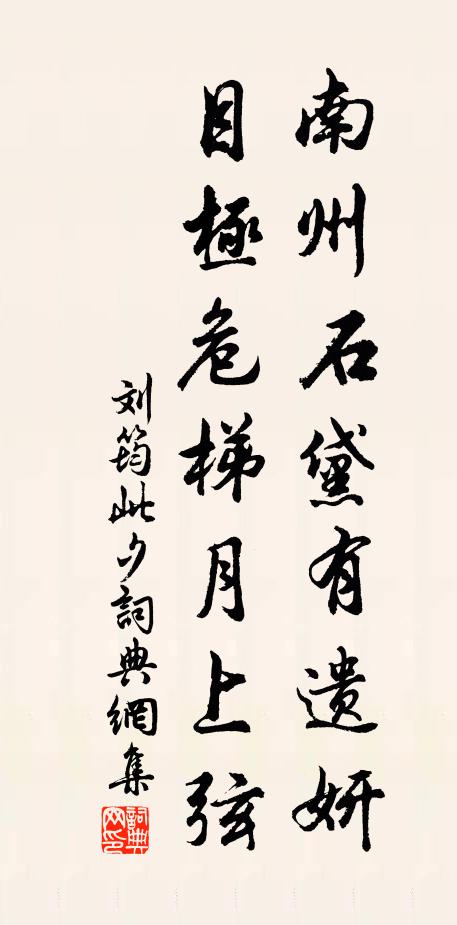 南州石黛有遗妍
目極危梯月上弦
刘筠此夕詞典網集
詞典
网印